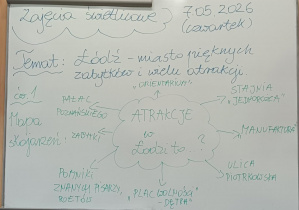 Zajęcia świetlicowe
7.05.2026
(czwartek)
Temat: Łódź - miasto pięknych
zabytków i wielu atrakcji
cz. 1
Mapa
skojarzeń:
"ORIENTARIUM"
STAJNIA
"JEDNOROŻCA"
PAŁAC
POZNAŃSKIEGO
ATRAKCJE
w
Łodzi to...?
MANUFAKTURA
ZABYTKI
ULICA
PIOTRKOWSKA
POMNIKI
ZNANYCH PISARZY,
POETÓW
"PLAC WOLNOŚCI
- DĘTKA"